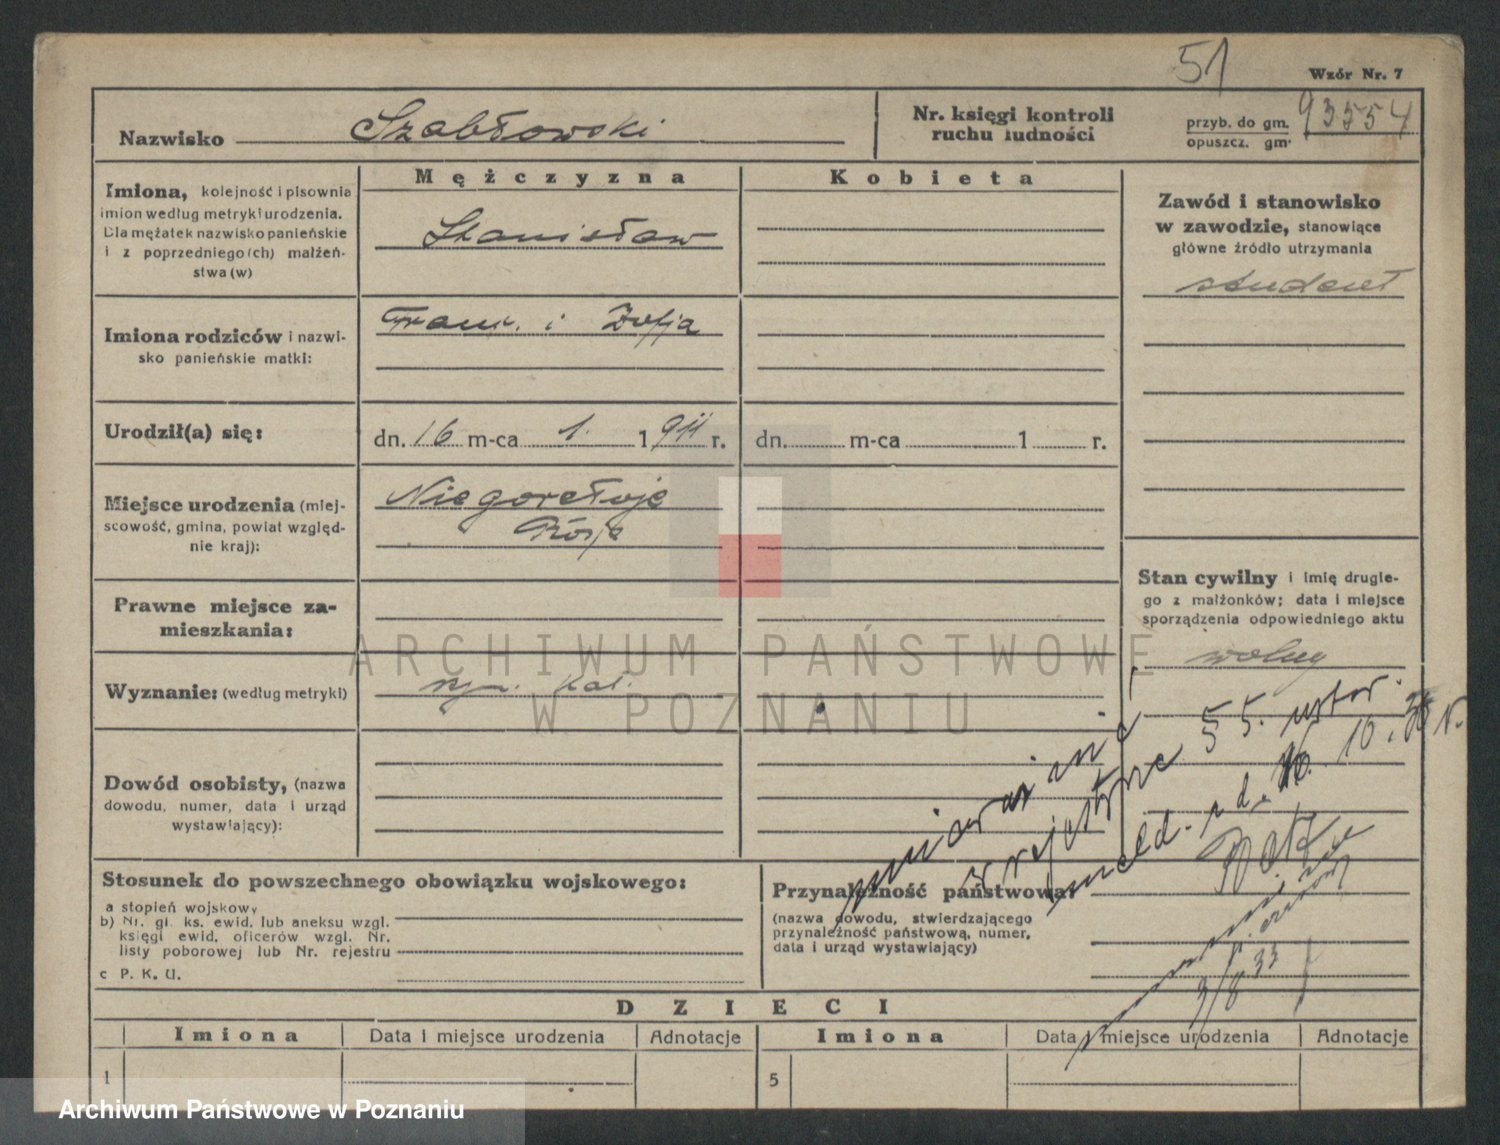 51
Wzór Nr. 7
Nazwisko Szabłowski
Nr. księgi kontroli
ruchu ludności
przyb. do gm. 93554
opuszcz. gm.
Mężczyzna
Kobieta
Imiona, kolejność i pisownia
imion według metryki urodzenia.
Dla mężatek nazwisko panieńskie
i z poprzedniego(ch) małżeń-
stwa (w)
Stanisław
Zawód i stanowisko
w zawodzie, stanowiące
główne źródło utrzymania
student
Imiona rodziców i nazwi-
sko panieńskie matki:
Franc. i Zofja
Urodził(a) się:
dn. 16 m-ca 1. 1911 r.
dn. m-ca 1 r.
Miejsce urodzenia (miej-
scowość, gmina, powiat względ-
nie kraj):
Niegorełoje
Rosja
Stan cywilny i imię drugie-
go z małżonków; data i miejsce
sporządzenia odpowiedniego aktu
wolny
Prawne miejsce za-
mieszkania:
Wyznanie: (według metryki)
rzym. kat.
ARCHIWUM PAŃSTWOWE
W POZNANIU
w rejestrze § 5.
meld. z d. 10.
Dowód osobisty, (nazwa
dowodu, numer, data i urząd
wystawiający):
Stosunek do powszechnego obowiązku wojskowego:
a stopień wojskowy
b) Nr. gł. ks. ewid. lub aneksu wzgl.
księgi ewid. oficerów wzgl. Nr.
listy poborowej lub Nr. rejestru
c P. K. U.
Przynależność państwowa:
(nazwa dowodu, stwierdzającego
przynależność państwową, numer,
data i urząd wystawiający)
3/8 33
DZIECI
Imiona
Data i miejsce urodzenia
Adnotacje
Imiona
Data i miejsce urodzenia
Adnotacje
1
5
Archiwum Państwowe w Poznaniu